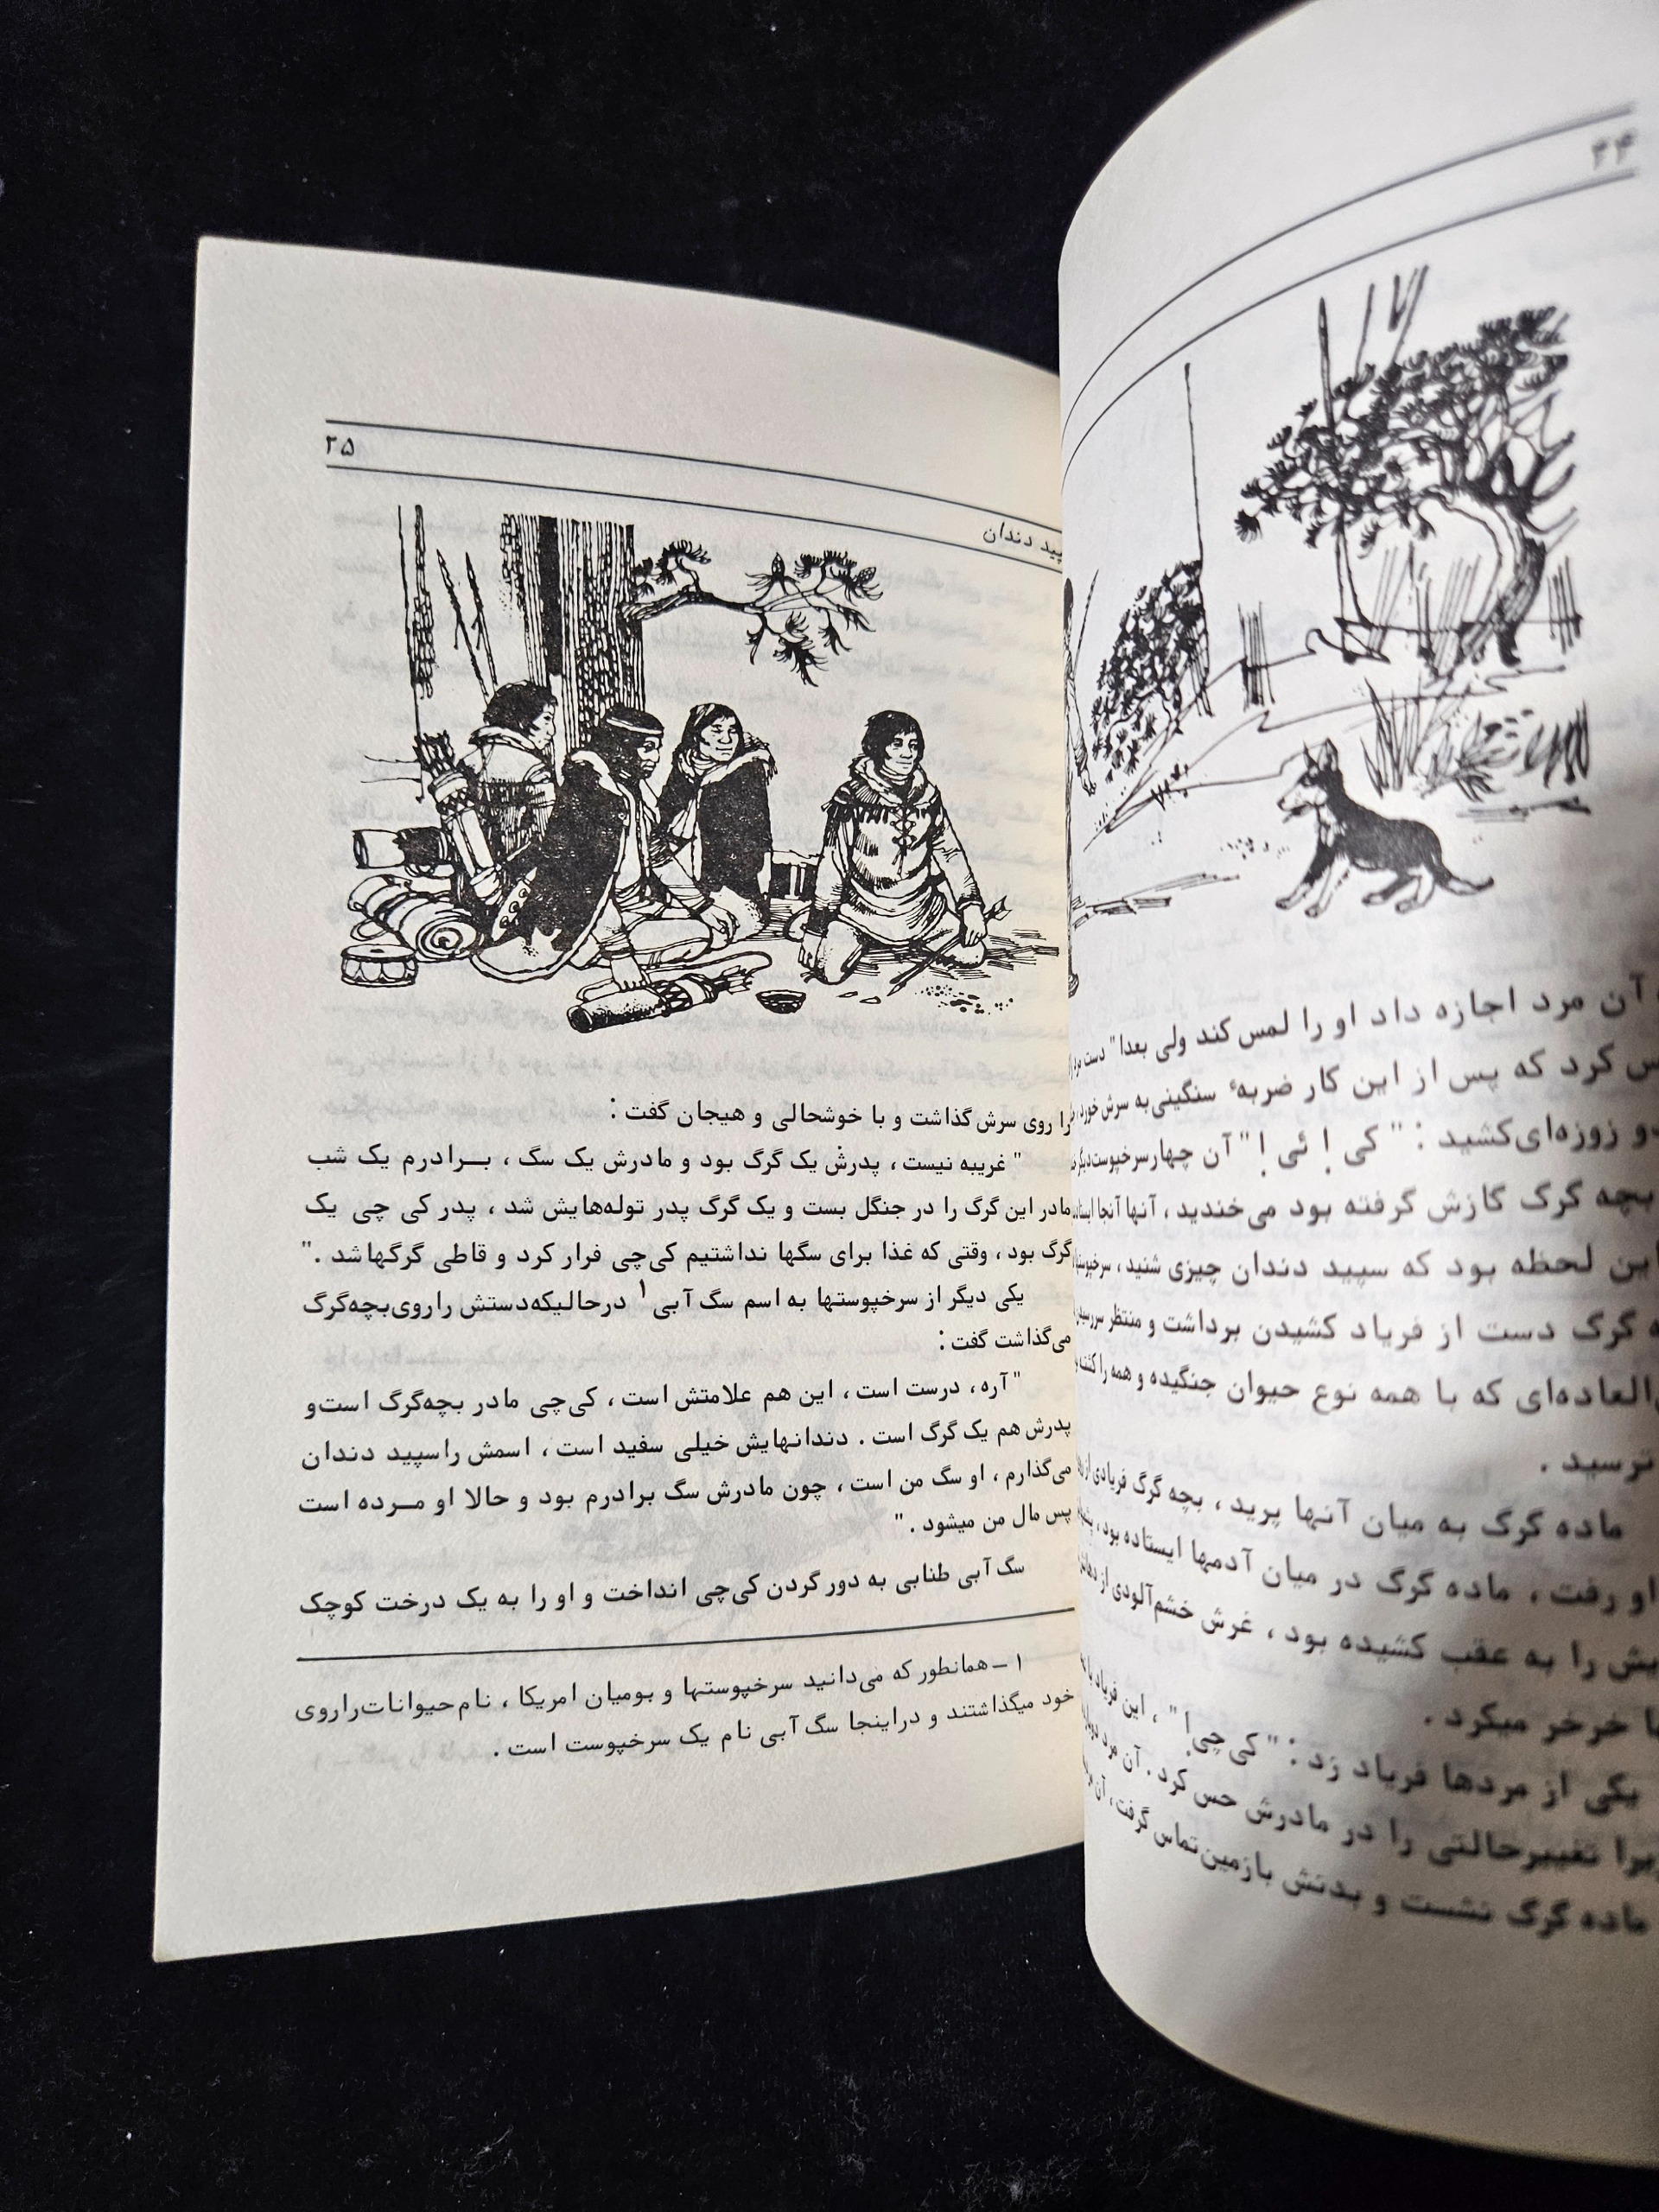 ۲۴
آن مرد اجازه داد او را لمس کند ولی بعدا" دست
کرد که پس از این کار ضربهٔ سنگینی به سرش خورد،
و زوزه‌ای کشید : " کی ! ئی ! " آن چهار سرخپوست دیگر
بچه گرگ گازش گرفته بود می‌خندید ، آنها آنجا
این لحظه بود که سپید دندان چیزی شنید ،
گرگ دست از فریاد کشیدن برداشت و منتظر
العاده‌ای که با همه نوع حیوان جنگیده و همه را
ترسید .
ماده گرگ به میان آنها پرید ، بچه گرگ فریادی از
او رفت ، ماده گرگ در میان آدمها ایستاده بود ،
را به عقب کشیده بود ، غرش خشم‌آلودی از
خرخر میکرد .
یکی از مردها فریاد زد : " کی‌چی ! " ، این فریاد
تغییر حالتی را در مادرش حس کرد . آن مرد
ماده گرگ نشست و بدنش با زمین تماس گرفت ، آن
دندان
۲۵
را روی سرش گذاشت و با خوشحالی و هیجان گفت :
" غریبه نیست ، پدرش یک گرگ بود و مادرش یک سگ ، بــرادرم یک شب
مادر این گرگ را در جنگل بست و یک گرگ پدر توله‌هایش شد ، پدر کی چی یک
گرگ بود ، وقتی که غذا برای سگها نداشتیم کی‌چی فرار کرد و قاطی گرگها شد . "
یکی دیگر از سرخپوستها به اسم سگ آبی ۱ درحالیکه دستش را روی بچه‌گرگ
می‌گذاشت گفت :
" آره ، درست است ، این هم علامتش است ، کی‌چی مادر بچه‌گرگ است و
پدرش هم یک گرگ است . دندانهایش خیلی سفید است ، اسمش را سپید دندان
می‌گذارم ، او سگ من است ، چون مادرش سگ برادرم بود و حالا او مــرده است
پس مال من میشود . "
سگ آبی طنابی به دور گردن کی‌چی انداخت و او را به یک درخت کوچک
۱ – همانطور که می‌دانید سرخپوستها و بومیان امریکا ، نام حیوانات را روی
خود میگذاشتند و دراینجا سگ آبی نام یک سرخپوست است .